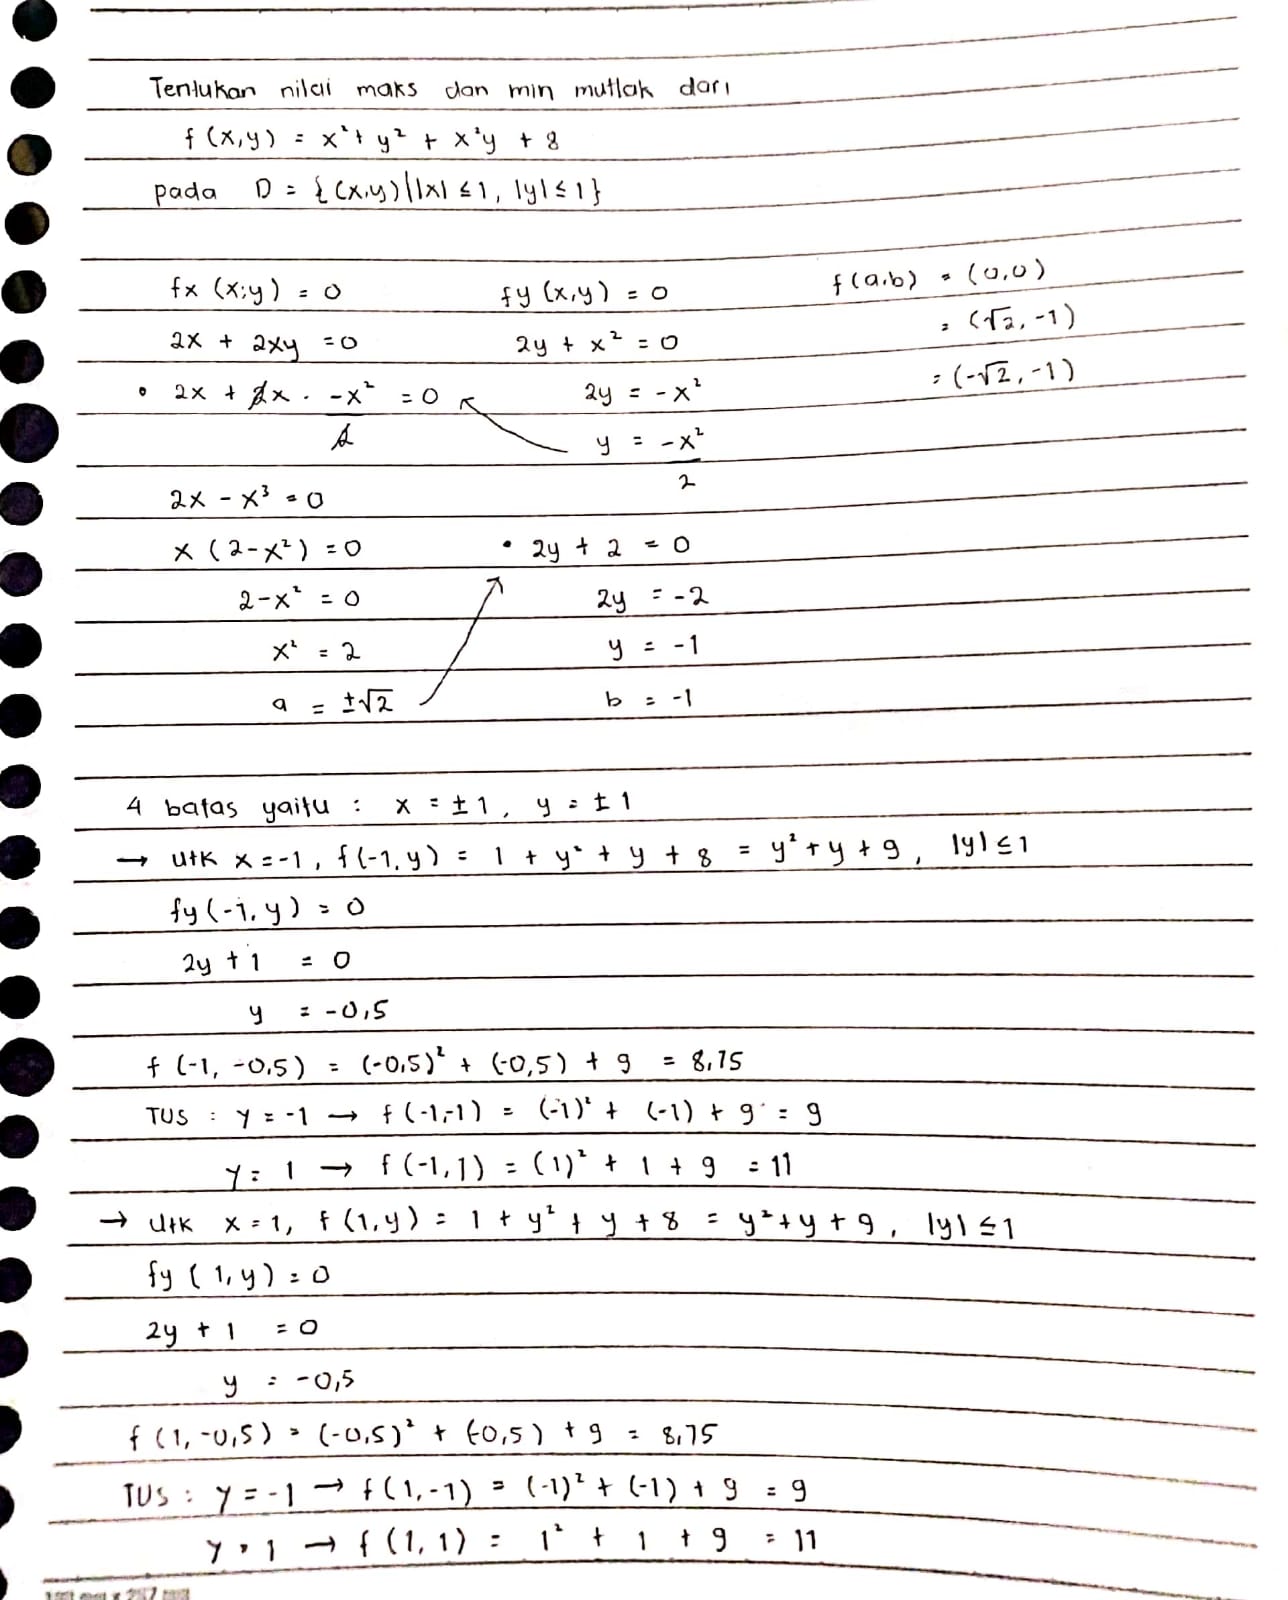 Tentukan nilai maks dan min mutlak dari
f (x,y) = x² + y² + x²y + 8
pada D = {(x,y) | |x| ≤ 1, |y| ≤ 1}
fx (x,y) = 0 fy (x,y) = 0 f(a,b) = (0,0)
2x + 2xy = 0 2y + x² = 0 = (√2, -1)
• 2x + 2x . -x²/2 = 0 2y = -x² = (-√2, -1)
y = -x²/2
2x - x³ = 0
x (2-x²) = 0 • 2y + 2 = 0
2-x² = 0 2y = -2
x² = 2 y = -1
a = ±√2 b = -1
4 batas yaitu : x = ±1, y = ±1
→ utk x = -1, f(-1, y) = 1 + y² + y + 8 = y² + y + 9, |y| ≤ 1
fy (-1, y) = 0
2y + 1 = 0
y = -0,5
f (-1, -0,5) = (-0,5)² + (-0,5) + 9 = 8,75
TUS : y = -1 → f (-1,-1) = (-1)² + (-1) + 9 = 9
y = 1 → f (-1, 1) = (1)² + 1 + 9 = 11
→ utk x = 1, f (1, y) = 1 + y² + y + 8 = y² + y + 9, |y| ≤ 1
fy (1, y) = 0
2y + 1 = 0
y = -0,5
f (1, -0,5) = (-0,5)² + (-0,5) + 9 = 8,75
TUS : y = -1 → f (1, -1) = (-1)² + (-1) + 9 = 9
y = 1 → f (1, 1) = 1² + 1 + 9 = 11